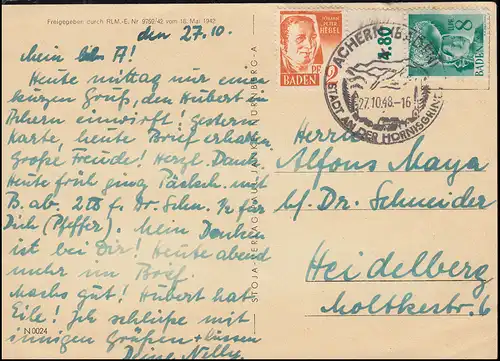 Freigegeben durch RLM.-E. Nr 9762/42 vom 18. Mai 1942
den 27.10.
Mein A!
Heute mittag nur einen
kurzen Gruß, den Hubert in
Achern einwirft! gestern
Karte, heute Brief erhalten
große Freude! Herzl. Dank
Heute früh ging Päckch. mit
B. ab. f. Dr. Schn. ½ für
Dich (Pfeffer). Mein Danken
ist bei Dir! Heute abend
mehr im Brief.
Machs gut! Hubert hat
Eile! Ich schließe mit
innigen Grüßen + Küssen
Deine Nelly
N 0024
STOJA-VERLAG PAUL JANKE NÜRNBERG-A
JOHANN PETER HEBEL
2 PF
BADEN
4.80
8
BADEN
ACHERN
27.10.48.-16
STADT AN DER HORNISGRINDE
Herrn
Alfons Maya
b/. Dr. Schneider
Heidelberg
Moltkestr. 6